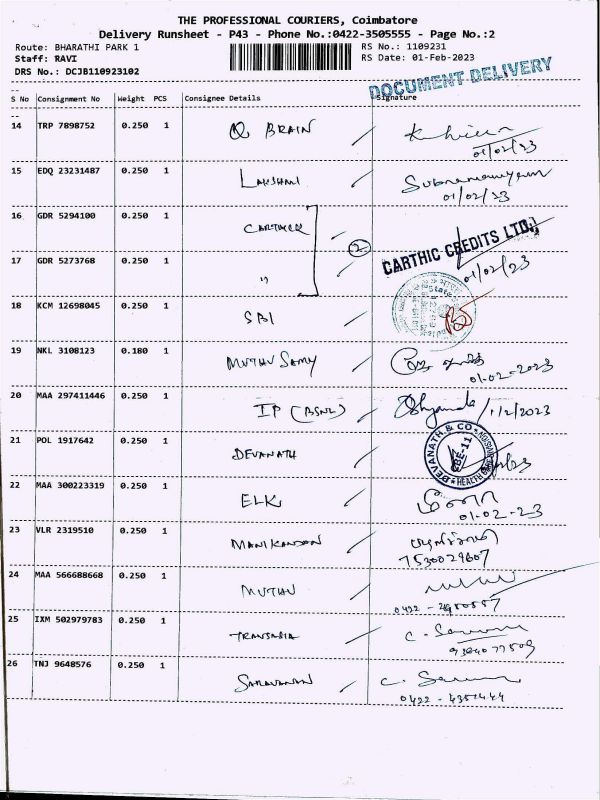 THE PROFESSIONAL COURIERS, Coimbatore
Delivery Runsheet - P43 - Phone No.:0422-3505555 - Page No.:2
Route: BHARATHI PARK 1 RS No.: 1109231
Staff: RAVI RS Date: 01-Feb-2023
DRS No.: DCJB110923102
DOCUMENT DELIVERY
S No Consignment No Weight PCS Consignee Details Signature
14 TRP 7898752 0.250 1 Q BRAIN
01/02/23
15 EDQ 23231487 0.250 1 LAKSHMI
01/02/23
16 GDR 5294100 0.250 1
CARTHIC CREDITS LTD.,
2
17 GDR 5273768 0.250 1 "
01/02/23
18 KCM 12698045 0.250 1 SBI
19 NKL 3108123 0.180 1 MUTHU SAMY
01-02-2023
20 MAA 297411446 0.250 1 IP (BSNL)
1/2/2023
21 POL 1917642 0.250 1 DEVANATH
DEVANATH & CO
CBE-11
22 MAA 300223319 0.250 1 ELK
01-02-23
23 VLR 2319510 0.250 1 MANIKANDAN
7530029607
24 MAA 566688668 0.250 1 MUTHU
25 IXM 502979783 0.250 1 TRANSASIA
26 TNJ 9648576 0.250 1 SARAVANAN